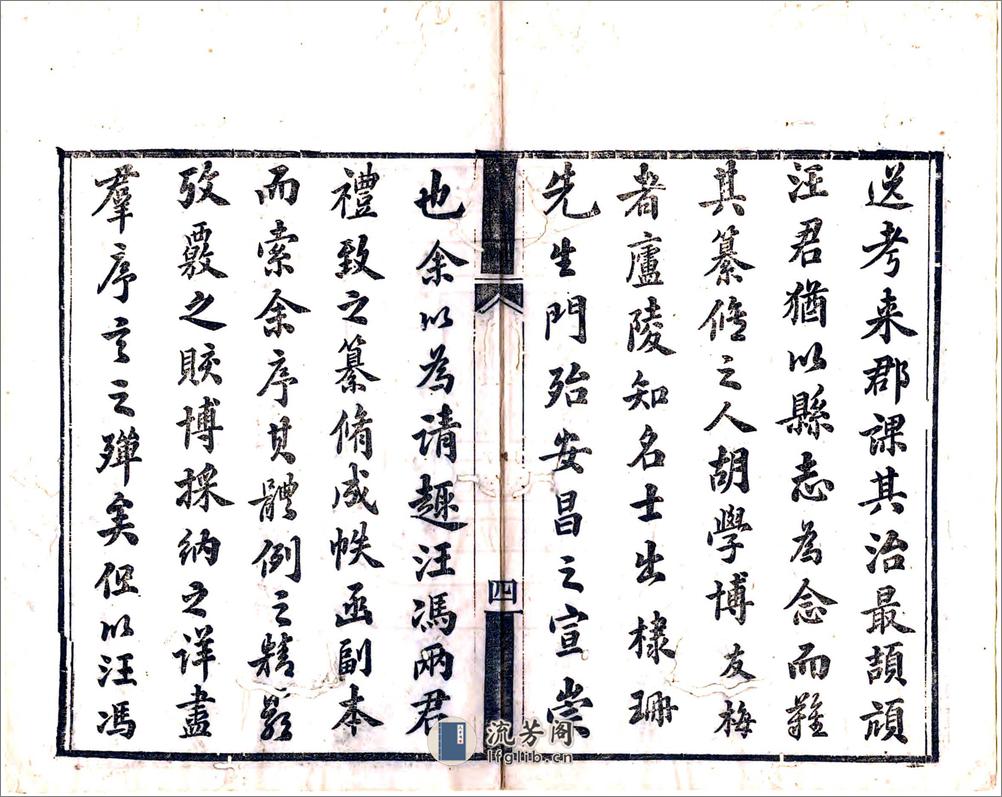 送考来郡課其治最頡頏
汪君猶以縣志為念而難
其纂脩之人胡學博友梅
者廬陵知名士出棣珊
先生門殆安昌之宣崇
四
也余以為請趣汪馮兩君
禮致之纂脩成帙函副本
而索余序其體例之精嚴
攷覈之賅博採納之詳盡
羣序言之殫矣但以汪馮
流芳阁
lfglib.cn